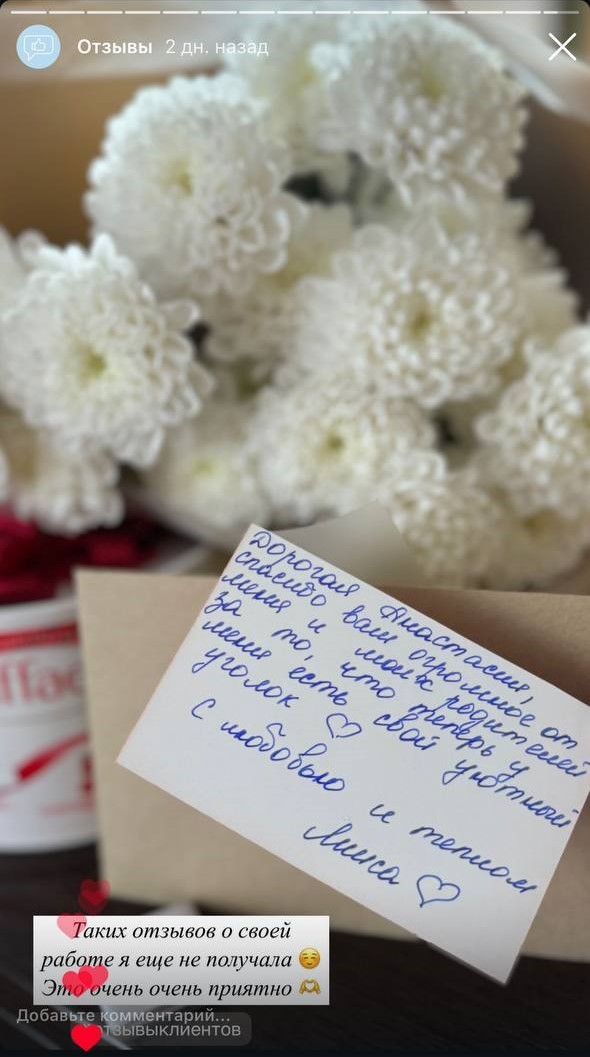 Отзывы 2 дн. назад
Дорогая Анастасия,
спасибо вам огромное от
меня и моих родителей
за то, что теперь у
меня есть свой уютный
уголок ♡
С любовью и теплом
Алиса ♡
Таких отзывов о своей
работе я еще не получала ☺️
Это очень очень приятно 🫶
Добавьте комментарий...
отзывыклиентов